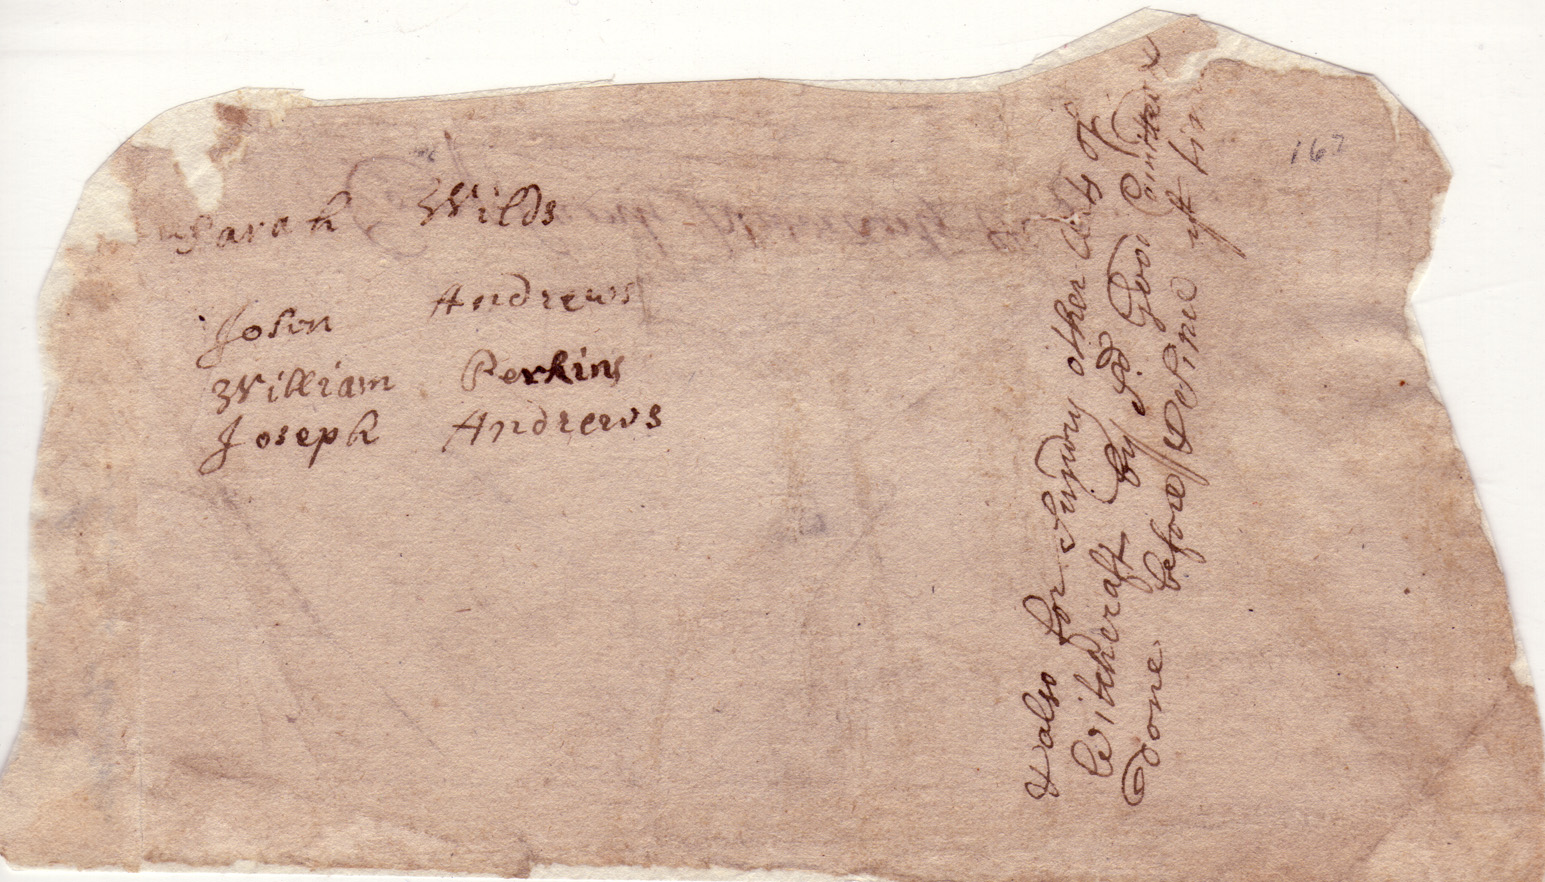 Sarah Wilds
John Andrews
William Perkins
Joseph Andrews
& also for Sundry other Acts of
Witchcraft by sd Good Comitted &
done before & Since yt time
167